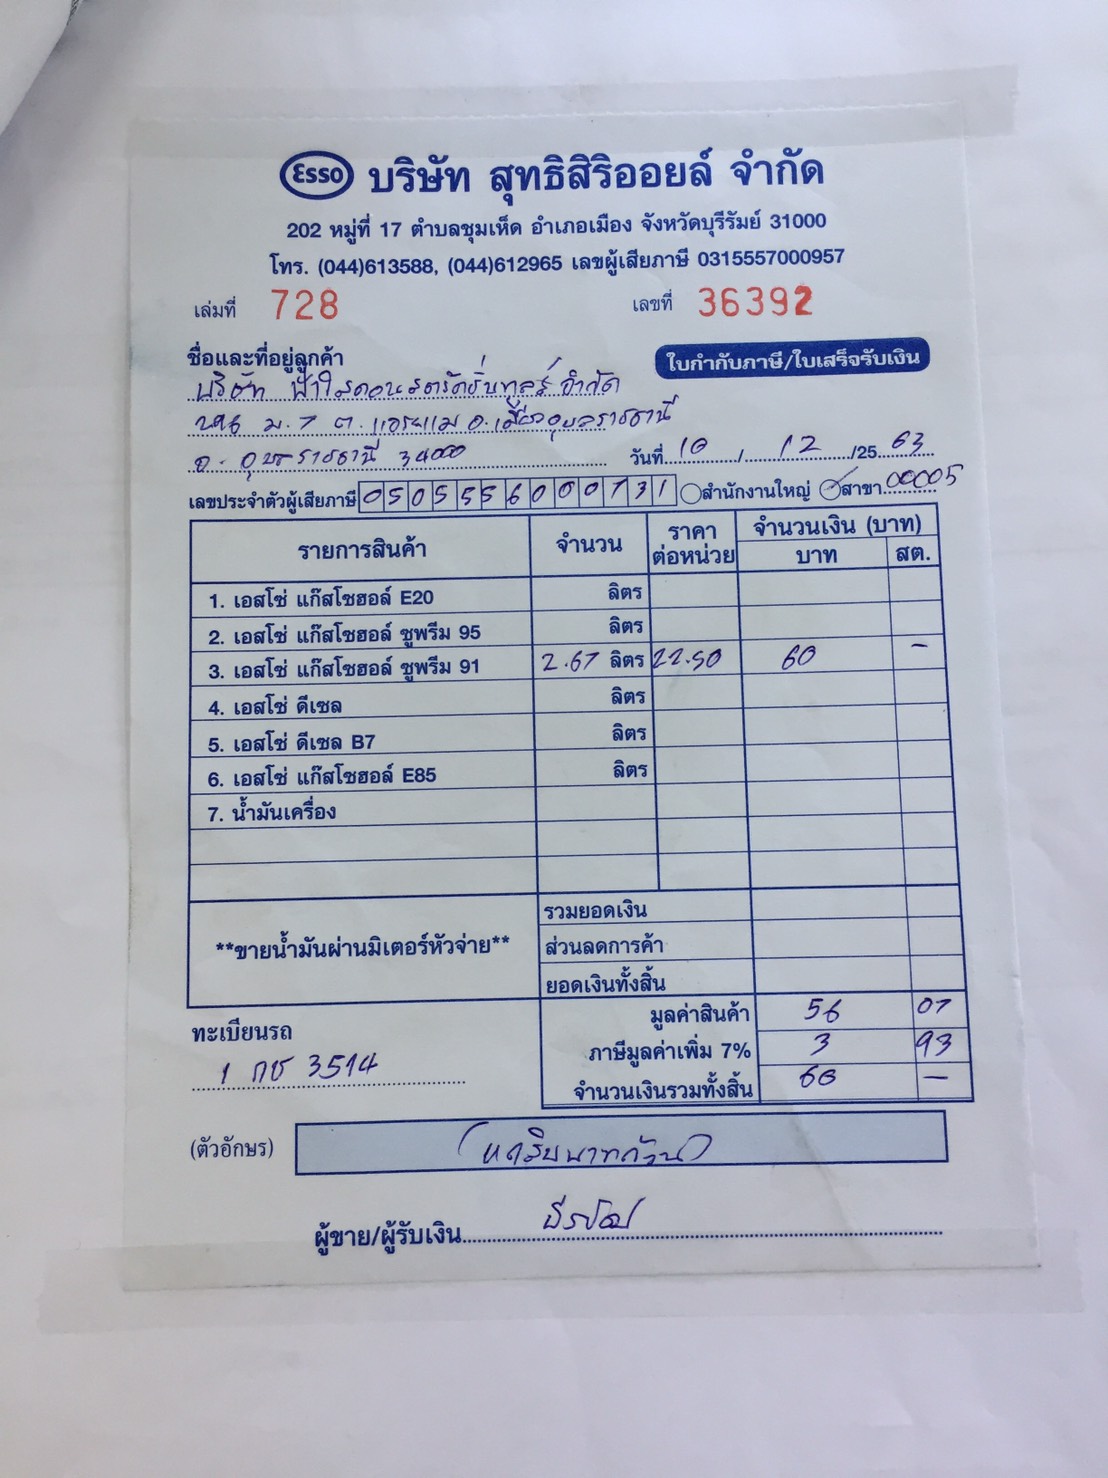 Esso บริษัท สุทธิสิริออยล์ จำกัด
202 หมู่ที่ 17 ตำบลชุมเห็ด อำเภอเมือง จังหวัดบุรีรัมย์ 31000
โทร. (044)613588, (044)612965 เลขผู้เสียภาษี 0315557000957
เล่มที่ 728 เลขที่ 36392
ชื่อและที่อยู่ลูกค้า ใบกำกับภาษี/ใบเสร็จรับเงิน
บริษัท จำกัด
ม. 7 ต. อ.เมืองอุบลราชธานี
จ. อุบลราชธานี 34000 วันที่ 10 / 12 /25 63
เลขประจำตัวผู้เสียภาษี 0505556000731 สำนักงานใหญ่ สาขา 00005
รายการสินค้า จำนวน ราคาต่อหน่วย จำนวนเงิน (บาท)
บาท สต.
1. เอสโซ่ แก๊สโซฮอล์ E20 ลิตร
2. เอสโซ่ แก๊สโซฮอล์ ซูพรีม 95 ลิตร
3. เอสโซ่ แก๊สโซฮอล์ ซูพรีม 91 2.67 ลิตร 22.50 60 –
4. เอสโซ่ ดีเซล ลิตร
5. เอสโซ่ ดีเซล B7 ลิตร
6. เอสโซ่ แก๊สโซฮอล์ E85 ลิตร
7. น้ำมันเครื่อง
รวมยอดเงิน
**ขายน้ำมันผ่านมิเตอร์หัวจ่าย** ส่วนลดการค้า
ยอดเงินทั้งสิ้น
มูลค่าสินค้า 56 07
ทะเบียนรถ ภาษีมูลค่าเพิ่ม 7% 3 93
1 กช 3514 จำนวนเงินรวมทั้งสิ้น 60 –
(ตัวอักษร) (หกสิบบาทถ้วน)
ผู้ขาย/ผู้รับเงิน